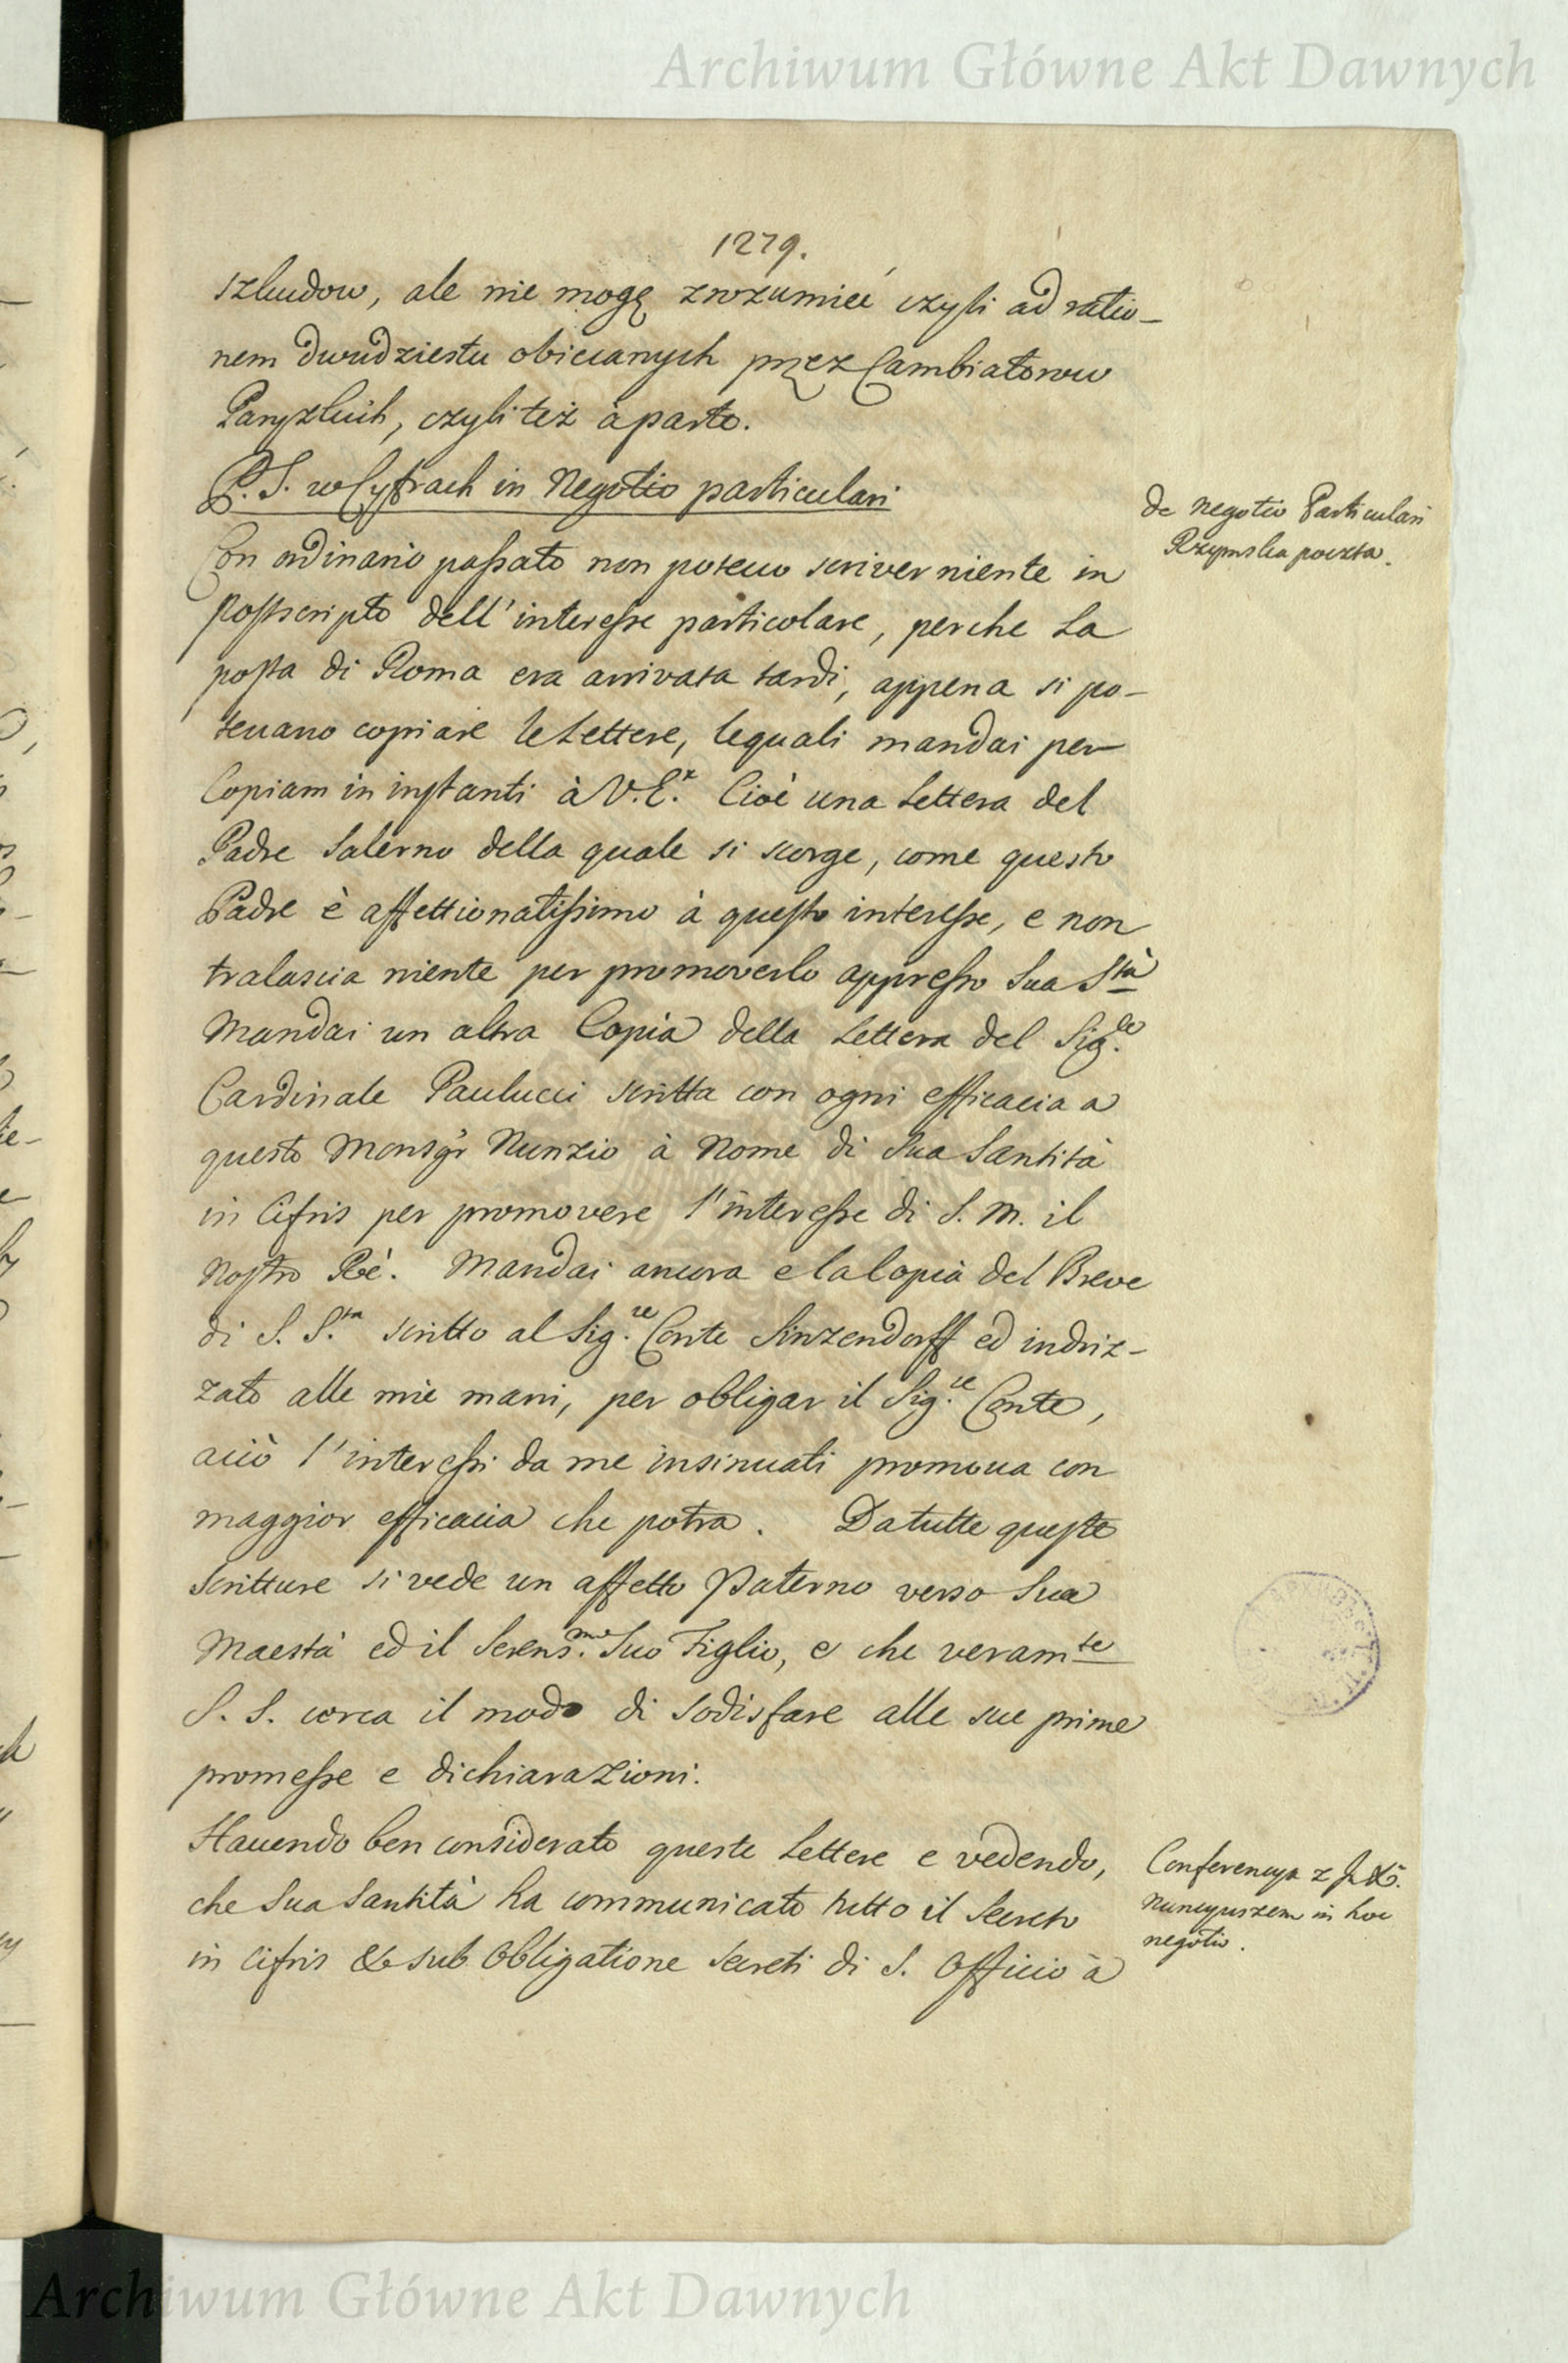 Archiwum Główne Akt Dawnych
1279.
szkudow, ale nie mogę zrozumieć czyli ad ratio-
nem dwudziestu obiecanych przez Cambiatorow
Paryzkich, czyli też aparte.
P. S. w Cyfrach in Negotio particulari
de negotio Particulari
Rzymska poczta.
Con ordinario passato non poteuo scriver niente in
Postscripto dell' interesse particolare, perche La
posta di Roma era arrivata tardi, appena si po-
teuano copiare le Lettere, lequali mandai per
Copiam in instanti à V. E. Cioè una Lettera del
Padre Salerno della quale si scorge, come questo
Padre è affettionatissimo à questo interesse, e non
tralascia niente per promoverlo appresso Sua Stà
Mandai un altra Copia della Lettera del Sig.le
Cardinale Paulucci scritta con ogni efficacia a
questo Monsgr Nunzio à Nome di Sua Santità
in Cifris per promovere l'interesse di S. M. il
Nostro Rè. Mandai ancora e la Copia del Breve
di S. S.ta scritto al Sig.re Conte Sinzendorff ed indriz-
zato alle mie mani, per obligar il Sig.re Conte,
acciò l'interessi da me insinuati promoua con
maggior efficacia che potra. Da tutte queste
Scritture si vede un affetto Paterno verso Sua
Maestà ed il Serens.mo Suo Figlio, e che veramte
S. S. cerca il modo di sodisfare alle sue prime
promesse e dichiarazioni.
Hauendo ben considerato queste Lettere e vedendo,
che Sua Santità ha communicato tutto il Secreto
in Cifris & sub Obligatione Secreti di S. Officio à
Conferencya z
Nuncyuszem in hoc
negotio.
Archiwum Główne Akt Dawnych